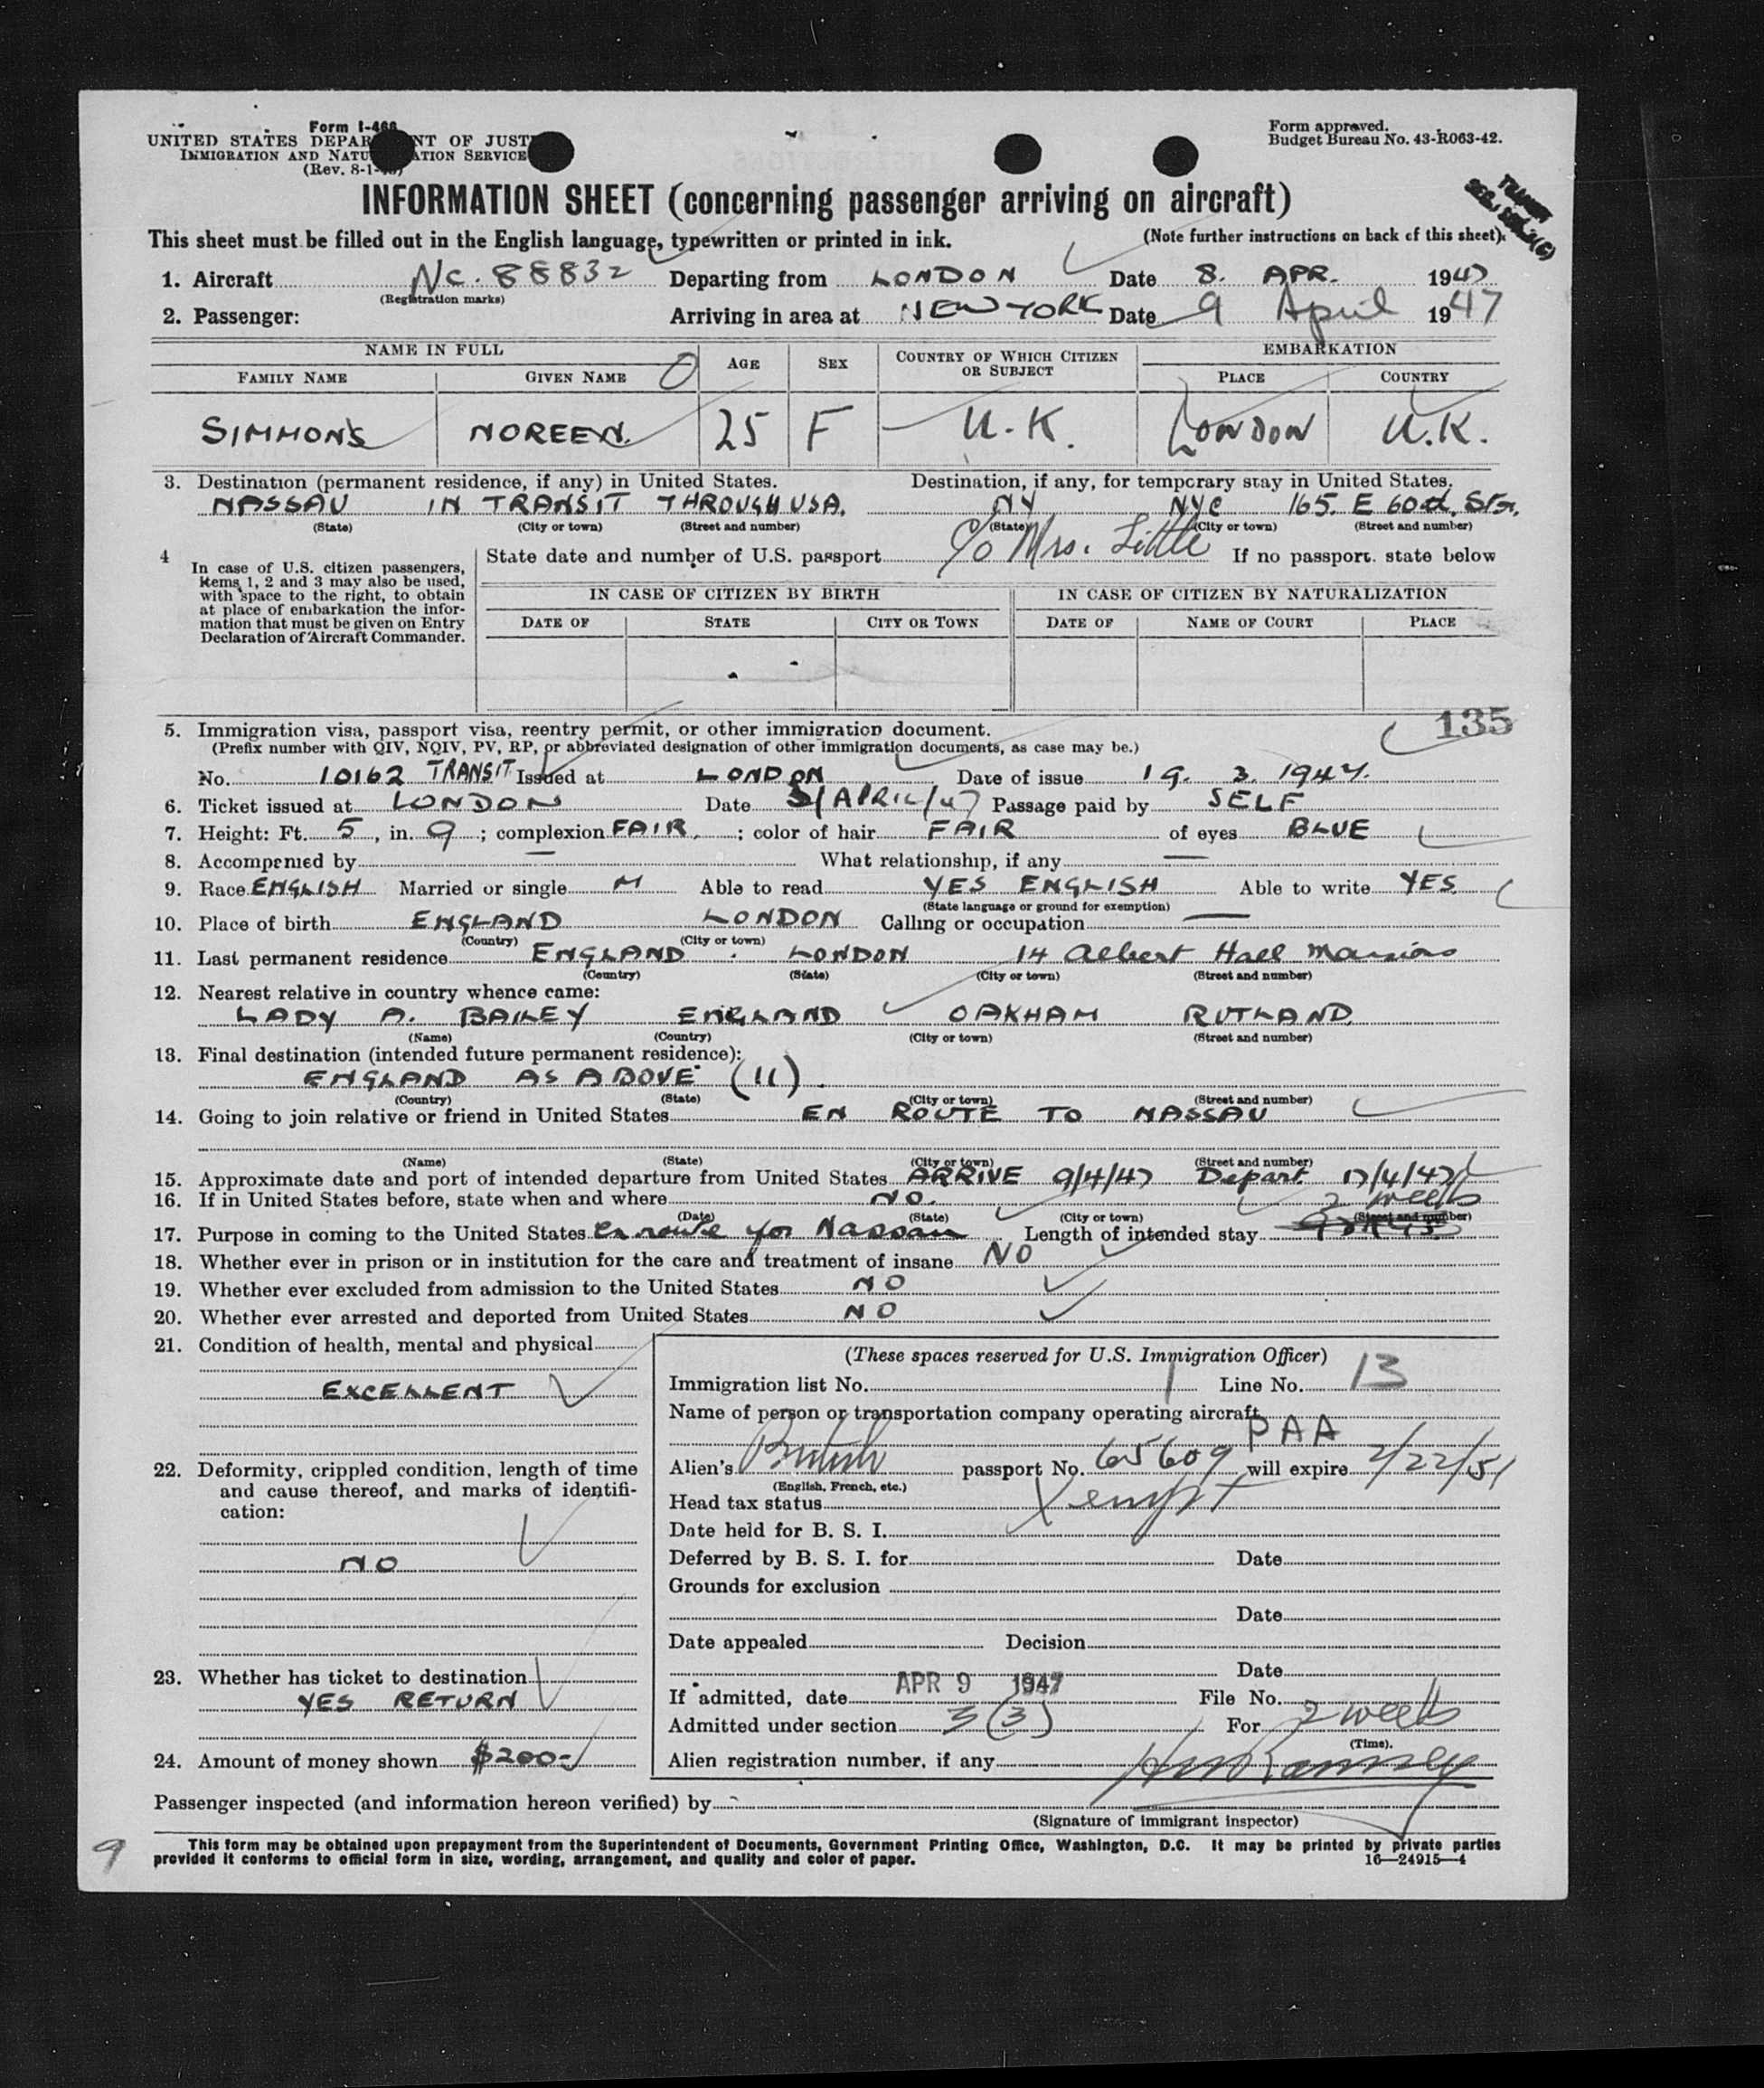 Form I-466
UNITED STATES DEPARTMENT OF JUSTICE
IMMIGRATION AND NATURALIZATION SERVICE
(Rev. 8-1-
Form approved.
Budget Bureau No. 43-R063-42.
INFORMATION SHEET (concerning passenger arriving on aircraft)
TRANSIT
This sheet must be filled out in the English language, typewritten or printed in ink. (Note further instructions on back of this sheet).
1. Aircraft Nc. 88832 Departing from LONDON Date 8. APR. 1947
(Registration marks)
2. Passenger: Arriving in area at NEW YORK Date 9 April 1947
NAME IN FULL AGE SEX COUNTRY OF WHICH CITIZEN OR SUBJECT EMBARKATION
FAMILY NAME GIVEN NAME PLACE COUNTRY
SIMMONS NOREEN. 25 F U.K. LONDON U.K.
3. Destination (permanent residence, if any) in United States. Destination, if any, for temporary stay in United States.
NASSAU IN TRANSIT THROUGH USA. NY NYC 165. E 60th Str.
(State) (City or town) (Street and number) (State) (City or town) (Street and number)
4 In case of U.S. citizen passengers, items 1, 2 and 3 may also be used, with space to the right, to obtain at place of embarkation the information that must be given on Entry Declaration of Aircraft Commander.
State date and number of U.S. passport c/o Mrs. Little If no passport. state below
IN CASE OF CITIZEN BY BIRTH IN CASE OF CITIZEN BY NATURALIZATION
DATE OF STATE CITY OR TOWN DATE OF NAME OF COURT PLACE
135
5. Immigration visa, passport visa, reentry permit, or other immigration document.
(Prefix number with QIV, NQIV, PV, RP, or abbreviated designation of other immigration documents, as case may be.)
No. 10162 TRANSIT Issued at LONDON Date of issue 19. 3. 1947.
6. Ticket issued at LONDON Date 3/APRIL/47 Passage paid by SELF
7. Height: Ft. 5, in. 9; complexion FAIR.; color of hair FAIR of eyes BLUE
8. Accompenied by — What relationship, if any —
9. Race ENGLISH Married or single M Able to read YES ENGLISH Able to write YES.
(State language or ground for exemption)
10. Place of birth ENGLAND LONDON Calling or occupation —
(Country) (City or town)
11. Last permanent residence ENGLAND. LONDON 14 Albert Hall Mansions
(Country) (State) (City or town) (Street and number)
12. Nearest relative in country whence came:
LADY A. BAILEY ENGLAND OAKHAM RUTLAND
(Name) (Country) (City or town) (Street and number)
13. Final destination (intended future permanent residence):
ENGLAND AS ABOVE (11).
(Country) (State) (City or town) (Street and number)
14. Going to join relative or friend in United States EN ROUTE TO NASSAU
(Name) (State) (City or town) (Street and number)
15. Approximate date and port of intended departure from United States ARRIVE 9/4/47 Depart 17/4/47
16. If in United States before, state when and where NO.
(Date) (State) (City or town) (Street and number)
17. Purpose in coming to the United States en route for Nassau Length of intended stay 2 weeks
18. Whether ever in prison or in institution for the care and treatment of insane NO
19. Whether ever excluded from admission to the United States NO
20. Whether ever arrested and deported from United States NO
21. Condition of health, mental and physical
EXCELLENT
22. Deformity, crippled condition, length of time and cause thereof, and marks of identification:
NO
23. Whether has ticket to destination
YES RETURN
24. Amount of money shown $200-
(These spaces reserved for U.S. Immigration Officer)
Immigration list No. 1 Line No. 13
Name of person or transportation company operating aircraft
PAA
Alien's British passport No. 65609 will expire 2/22/51
(English, French, etc.)
Head tax status Xempt
Date held for B. S. I.
Deferred by B. S. I. for Date
Grounds for exclusion
Date
Date appealed Decision
Date
If admitted, date APR 9 1947 File No.
Admitted under section 3(3) For 2 weeks
(Time).
Alien registration number, if any
Passenger inspected (and information hereon verified) by
(Signature of immigrant inspector)
9
This form may be obtained upon prepayment from the Superintendent of Documents, Government Printing Office, Washington, D.C. It may be printed by private parties
provided it conforms to official form in size, wording, arrangement, and quality and color of paper. 16—24915—4